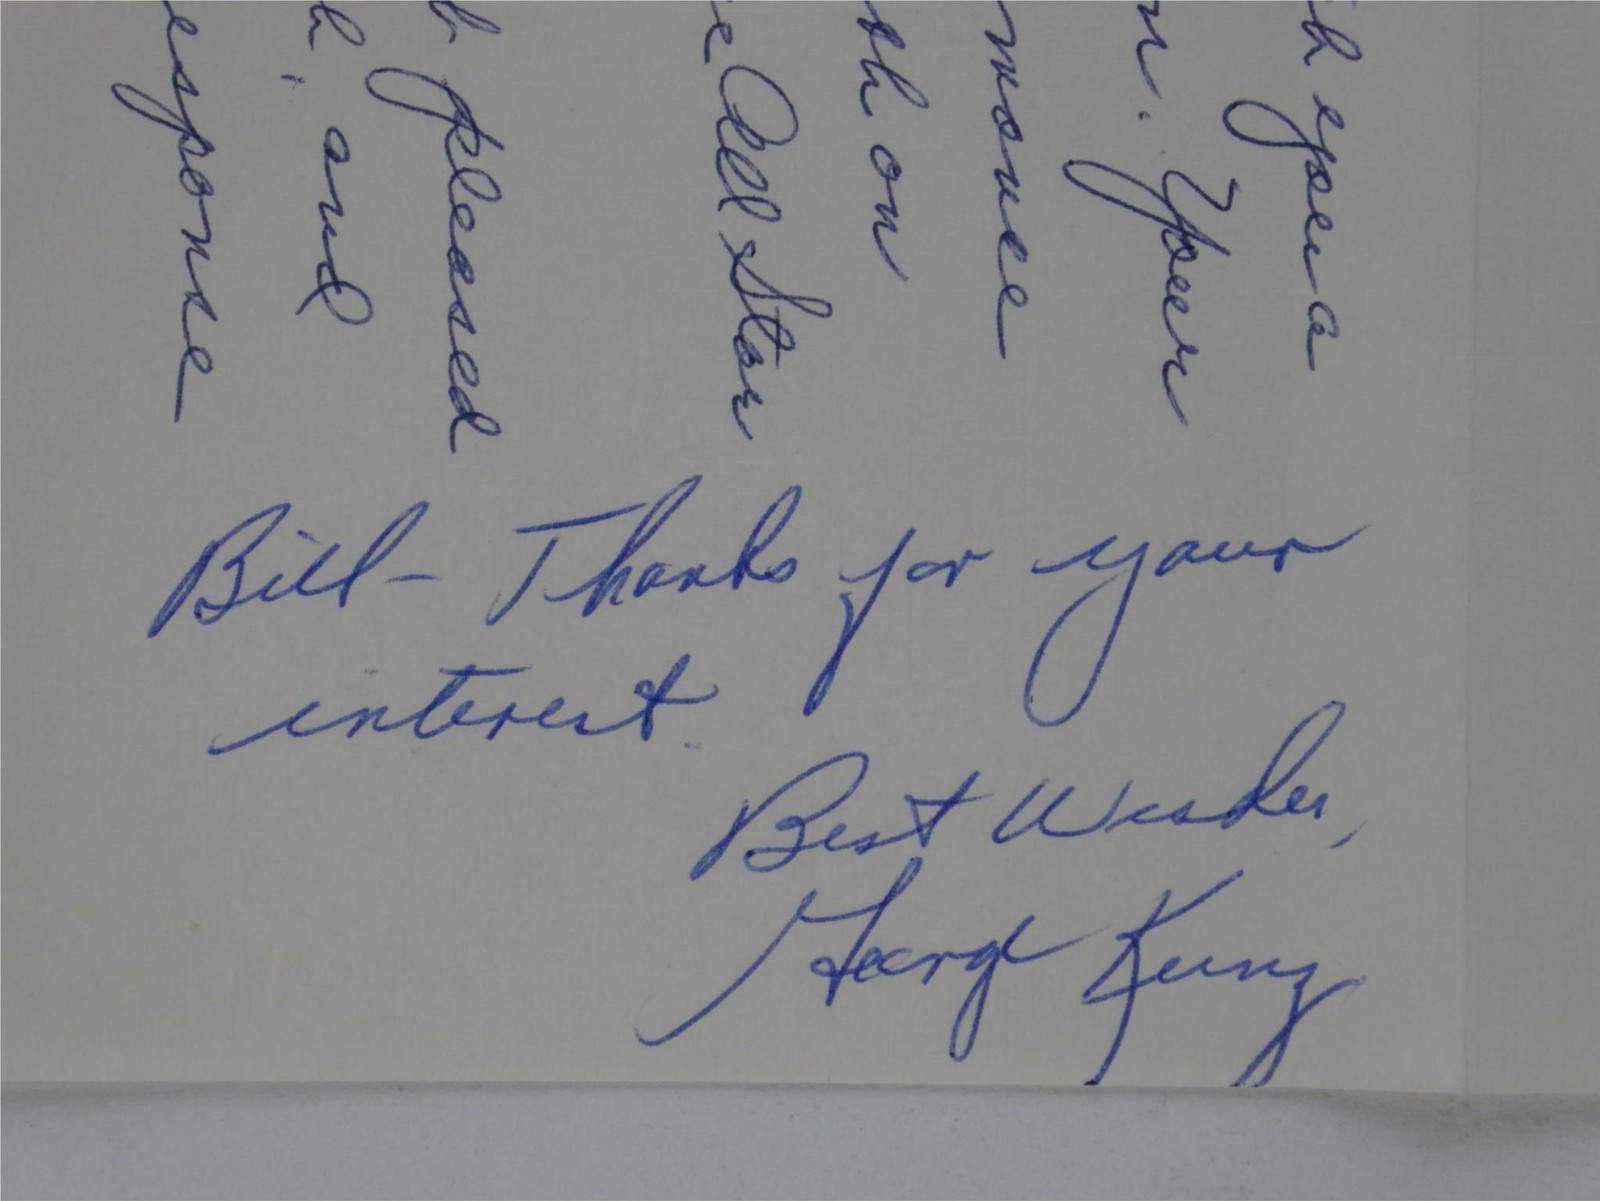 you a
Your
move
on
All Star
pleased
and
esponse
Bill - Thanks for your
interest.
Best Wishes,
George Kunz